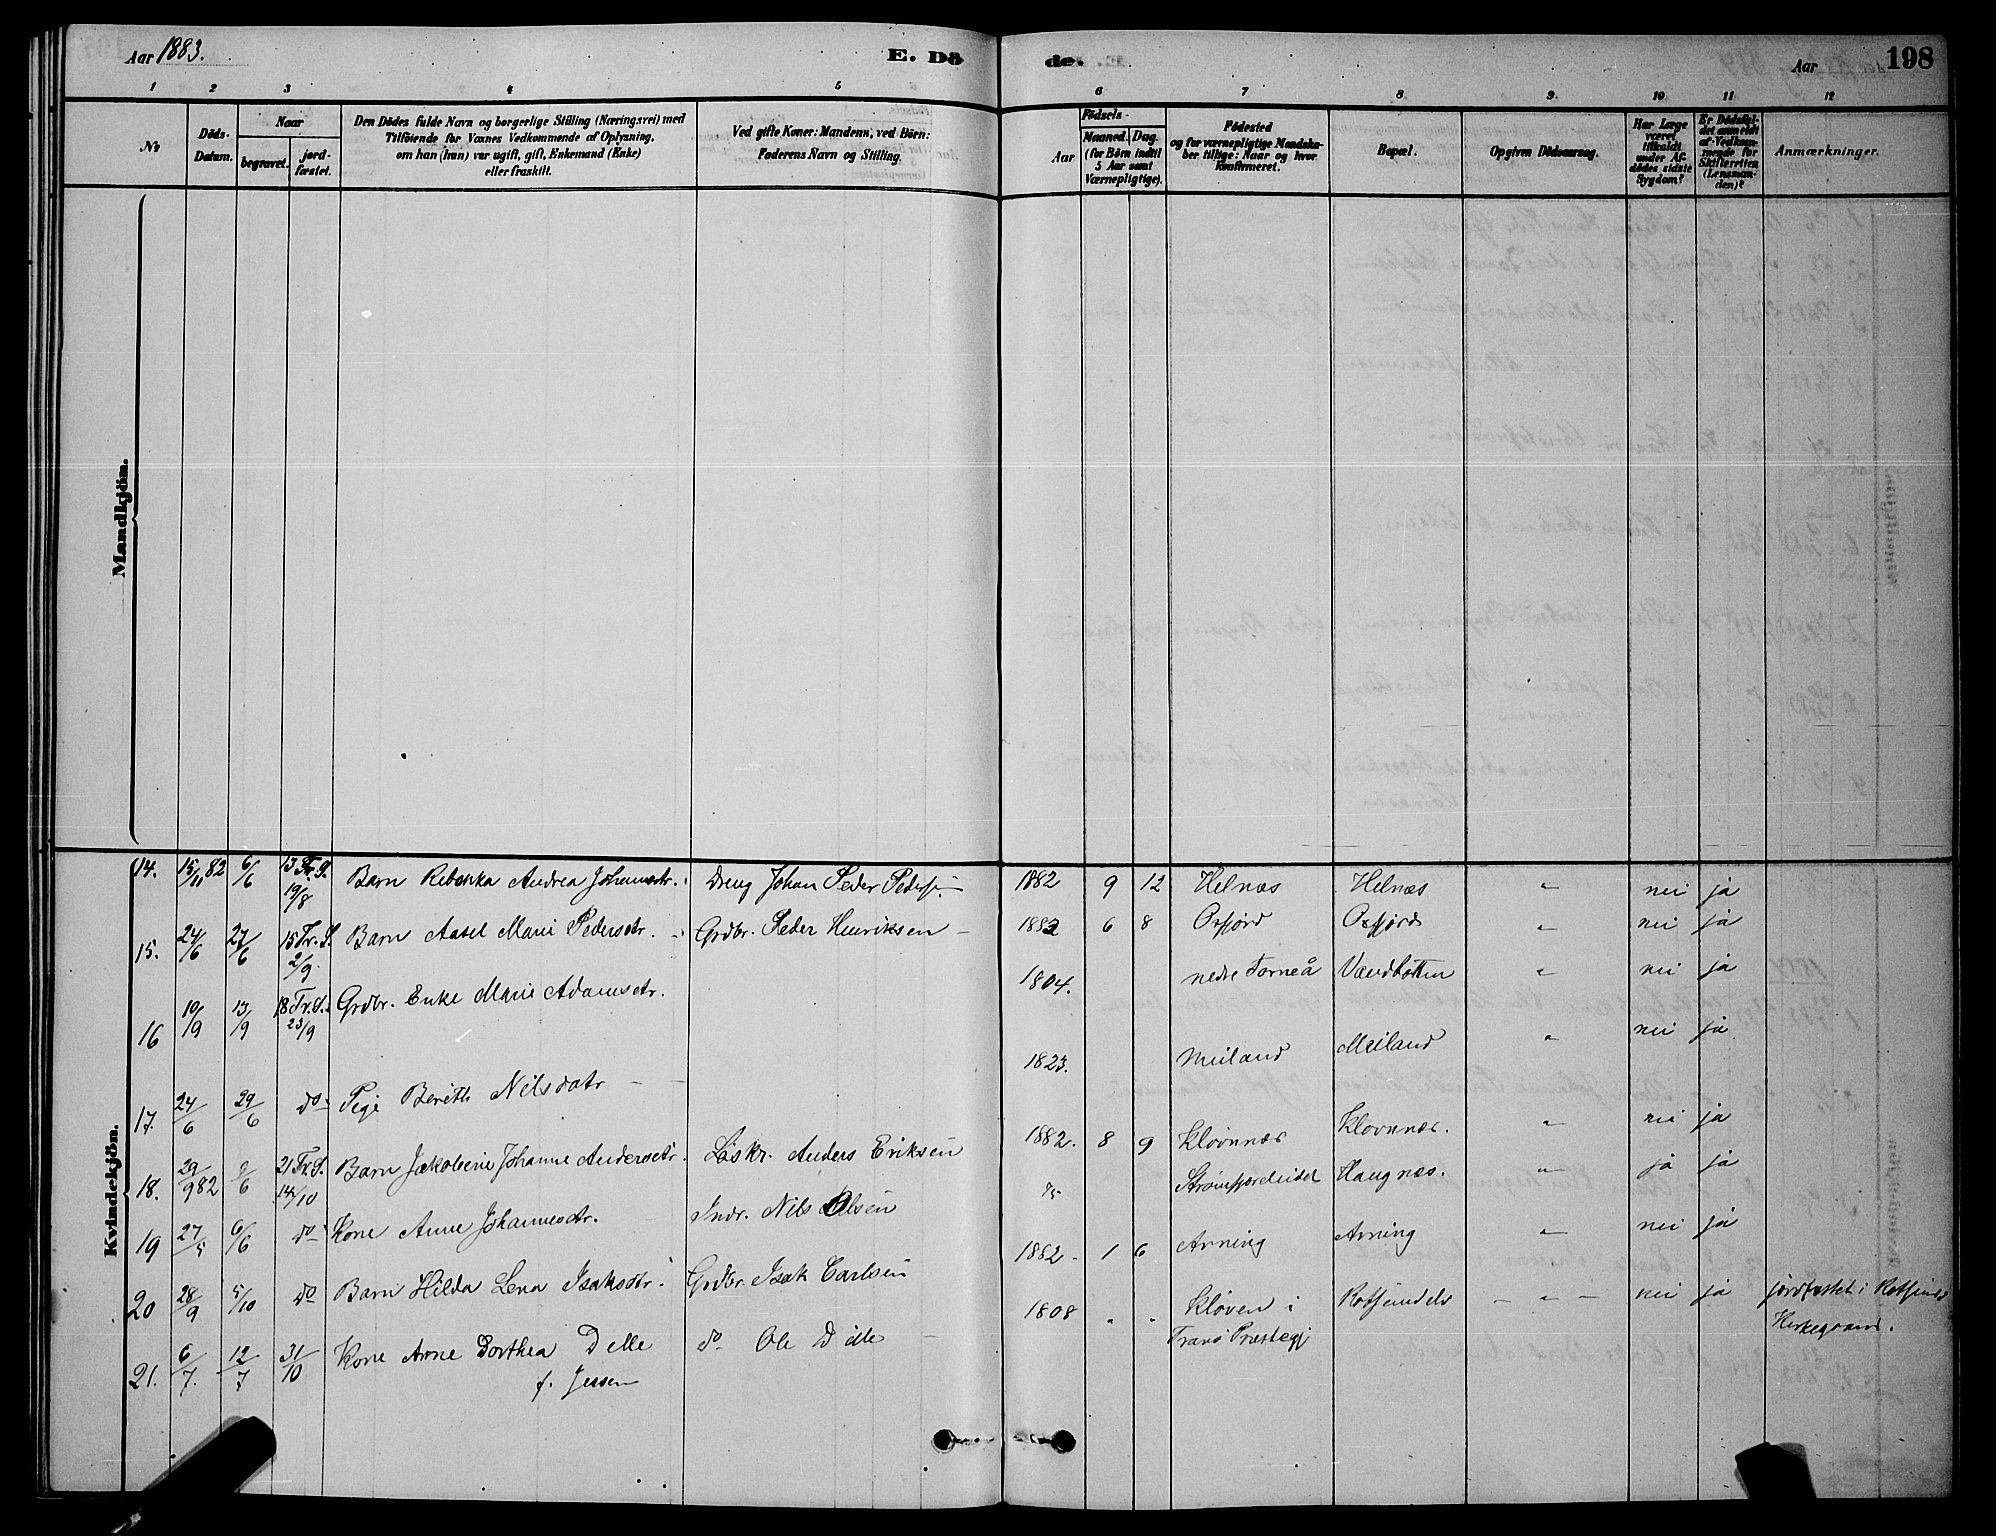 Aar 1883.
E. Dö
de.
Aar
198
1 2 3 4 5 6 7 8 9 10 11 12
No
Döds-Datum.
Naar
begravet.
jord-fæstet.
Den Dödes fulde Navn og borgerlige Stilling (Næringsvei) med
Tilföiende for Voxnes Vedkommende af Oplysning,
om han (hun) var ugift, gift, Enkemand (Enke)
eller fraskilt.
Ved gifte Koner: Mandens, ved Börn:
Faderens Navn og Stilling.
Födsels-
Aar
Maaned.
Dag.
(for Börn indtil
5 Aar samt
Værnepligtige).
Födested
og for værnepligtige Mandska-
ber tillige: Naar og hvor
konfirmeret.
Bopæl.
Opgiven Dödsaarsag.
Har Læge
været
tilkaldt
under Af-
dödes sidste
Sygdom?
Er Dödsfal-
det anmeldt
af Vedkom-
mende for
Skifteretten
(Lensman-
den)?
Anmærkninger.
Mandkjön.
Kvindekjön.
14. 15/11 82 6/6 13 Tr. S. 19/8 Barn Rebekka Andrea Johansdtr. Dreng Johan Peder Peders. 1882 9 12 Helnæs Helnæs " nei ja
15. 24/6 27/6 15 Tr. S. 2/9 Barn Aasel Marie Pedersdtr. Grdbr. Peder Henriksen 1882 6 8 Oxfjord Oxfjord " nei ja
16 10/9 13/9 18 Tr. S. 23/9 Grdbr. Enke Marie Adamsdtr. 1804. nedre Torneå Vandbotten " nei ja
17. 24/6 29/6 do Pige Bereth Nilsdatr 1823. Meiland Meiland " nei ja
18. 29/9 82 /6 21 Tr. S. 14/10 Barn Jakobine Johanne Andersdtr. Løskr. Anders Eriksen 1882. 8 9 Kløvnnæs Klovnnæs. " nei ja
19 27/5 6/6 do Kone Anne Johannesdtr. Indr. Nils Olsen 75 Strømfjordeidet Haugnæs. " ja ja
20 28/9 5/10 do Barn Hilda Lena Isaksdtr. Grdbr. Isak Carlsen 1882 1 6 Avning Avning " nei ja
21. 6/7. 12/7 31/10 Kone Anne Dorthea Delle do Ole Dille 1808 " " Kløven i Rotsundelv " nei ja jordfæstet i Rotsunds
f. Jessen Tranø Præstegj Kirkegaard.